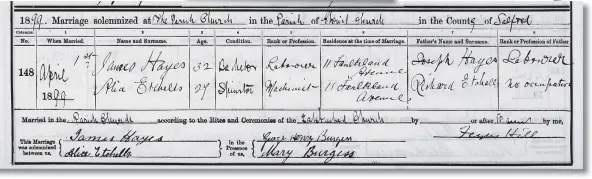 1899. Marriage solemnized at The Parish Church in the Parish of Christ Church in the County of Salford
Columns: 1 2 3 4 5 6 7 8
No. When Married. Name and Surname. Age. Condition. Rank or Profession. Residence at the time of Marriage. Father's Name and Surname. Rank or Profession of Father
148 April 1st 1899 James Hayes 32 Bachelor Labourer 11 Faulkland Avenue Joseph Hayes Labourer
Alice Etchells 27 Spinster Machinist 11 Faulkland Avenue Richard Etchells No occupation
Married in the Parish Church according to the Rites and Ceremonies of the Established Church by or after Banns by me,
This Marriage was solemnized between us, James Hayes Alice Etchells In the Presence of us, George Henry Burgess Mary Burgess Hill